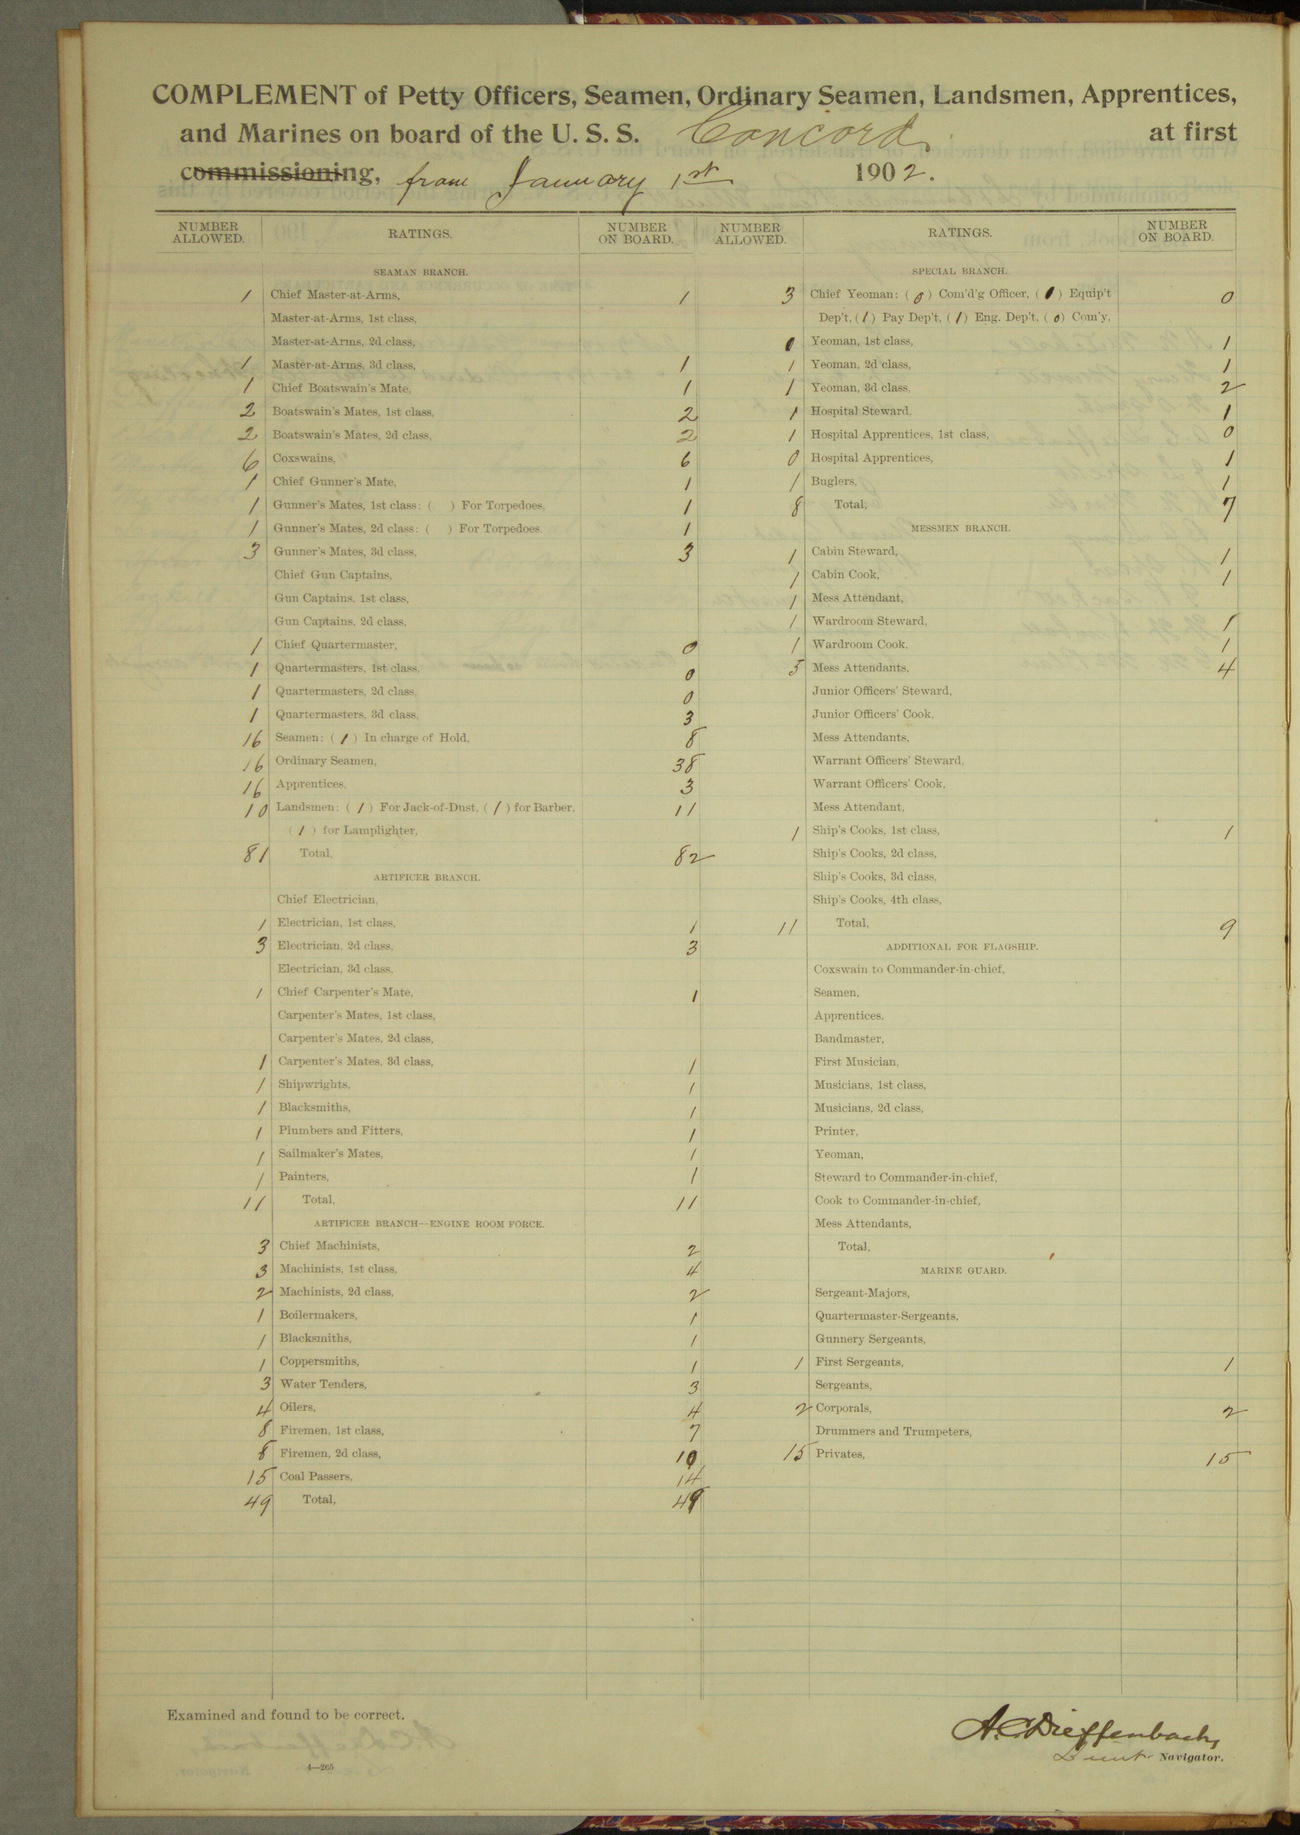 COMPLEMENT of Petty Officers, Seamen, Ordinary Seamen, Landsmen, Apprentices,
and Marines on board of the U. S. S. Concord, at first
commissioning, from January 1st 1902.
NUMBER ALLOWED. RATINGS. NUMBER ON BOARD.
SEAMAN BRANCH.
1 Chief Master-at-Arms, 1
Master-at-Arms, 1st class,
Master-at-Arms, 2d class,
1 Master-at-Arms, 3d class, 1
1 Chief Boatswain's Mate, 1
2 Boatswain's Mates, 1st class, 2
2 Boatswain's Mates, 2d class, 2
6 Coxswains, 6
1 Chief Gunner's Mate, 1
1 Gunner's Mates, 1st class: ( ) For Torpedoes, 1
1 Gunner's Mates, 2d class: ( ) For Torpedoes. 1
3 Gunner's Mates, 3d class, 3
Chief Gun Captains,
Gun Captains, 1st class,
Gun Captains, 2d class,
1 Chief Quartermaster, 0
1 Quartermasters, 1st class, 0
1 Quartermasters, 2d class, 0
1 Quartermasters, 3d class, 3
16 Seamen: ( 1 ) In charge of Hold, 8
16 Ordinary Seamen, 38
16 Apprentices, 3
10 Landsmen: ( 1 ) For Jack-of-Dust, ( 1 ) for Barber, 11
( 1 ) for Lamplighter,
81 Total, 82
ARTIFICER BRANCH.
Chief Electrician,
1 Electrician, 1st class, 1
3 Electrician, 2d class, 3
Electrician, 3d class,
1 Chief Carpenter's Mate, 1
Carpenter's Mates, 1st class,
Carpenter's Mates, 2d class,
1 Carpenter's Mates, 3d class, 1
1 Shipwrights, 1
1 Blacksmiths, 1
1 Plumbers and Fitters, 1
1 Sailmaker's Mates, 1
1 Painters, 1
11 Total, 11
ARTIFICER BRANCH—ENGINE ROOM FORCE.
3 Chief Machinists, 2
3 Machinists, 1st class, 4
2 Machinists, 2d class, 2
1 Boilermakers, 1
1 Blacksmiths, 1
1 Coppersmiths, 1
3 Water Tenders, 3
4 Oilers, 4
8 Firemen, 1st class, 7
8 Firemen, 2d class, 10
15 Coal Passers, 14
49 Total, 49
NUMBER ALLOWED. RATINGS. NUMBER ON BOARD.
SPECIAL BRANCH.
3 Chief Yeoman: ( 0 ) Com'd'g Officer, ( 1 ) Equip't 0
Dep't, ( 1 ) Pay Dep't, ( 1 ) Eng. Dep't, ( 0 ) Com'y,
0 Yeoman, 1st class, 1
1 Yeoman, 2d class, 1
1 Yeoman, 3d class, 2
1 Hospital Steward, 1
1 Hospital Apprentices, 1st class, 0
0 Hospital Apprentices, 1
1 Buglers, 1
8 Total, 7
MESSMEN BRANCH.
1 Cabin Steward, 1
1 Cabin Cook, 1
1 Mess Attendant,
1 Wardroom Steward, 1
1 Wardroom Cook, 1
5 Mess Attendants, 4
Junior Officers' Steward,
Junior Officers' Cook,
Mess Attendants,
Warrant Officers' Steward,
Warrant Officers' Cook,
Mess Attendant,
1 Ship's Cooks, 1st class, 1
Ship's Cooks, 2d class,
Ship's Cooks, 3d class,
Ship's Cooks, 4th class,
11 Total, 9
ADDITIONAL FOR FLAGSHIP.
Coxswain to Commander-in-chief,
Seamen,
Apprentices,
Bandmaster,
First Musician,
Musicians, 1st class,
Musicians, 2d class,
Printer,
Yeoman,
Steward to Commander-in-chief,
Cook to Commander-in-chief,
Mess Attendants,
Total,
MARINE GUARD.
Sergeant-Majors,
Quartermaster-Sergeants,
Gunnery Sergeants,
1 First Sergeants, 1
Sergeants,
2 Corporals, 2
Drummers and Trumpeters,
15 Privates, 15
Examined and found to be correct.
A. E. Dieffenbach,
Lieut. Navigator.
4—265